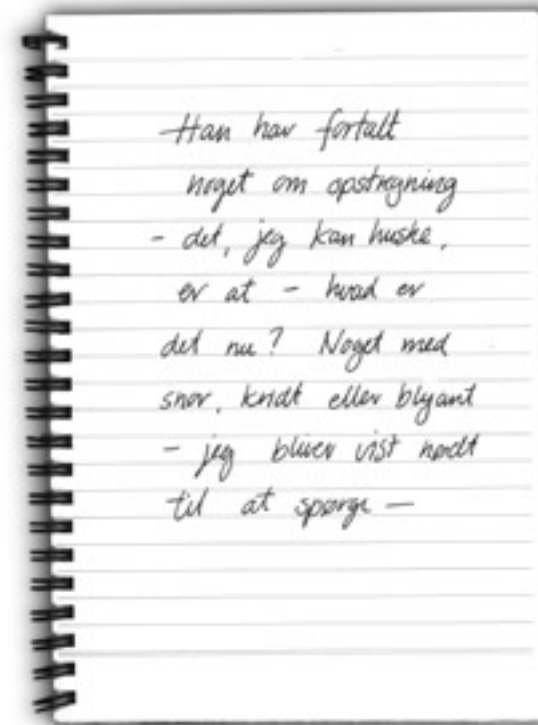 Han har fortalt
noget om opstregning
- det, jeg kan huske,
er at - hvad er
det nu? Noget med
snor, kridt eller blyant
- jeg bliver vist nødt
til at spørge —